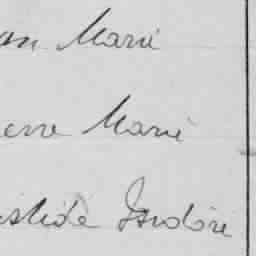 an Marie
erre Marie
istide Isidore